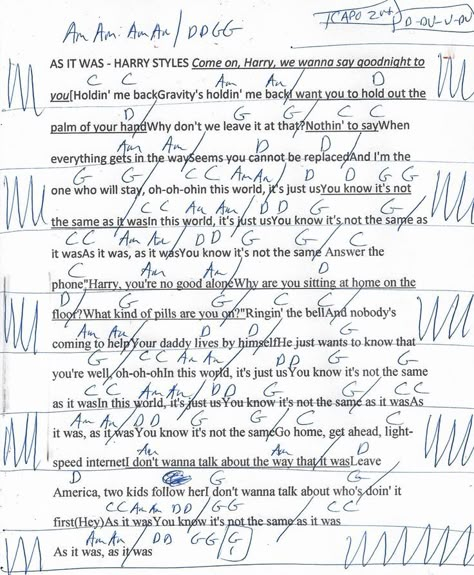 Am Am Am Am / D D G G CAPO 2nd D-DU-U-DU
AS IT WAS - HARRY STYLES Come on, Harry, we wanna say goodnight to
C C Am Am D
you[Holdin' me backGravity's holdin' me backI want you to hold out the
D G G C C
palm of your handWhy don't we leave it at that?Nothin' to sayWhen
Am Am D D
everything gets in the waySeems you cannot be replacedAnd I'm the
G G C C Am Am D D G G
one who will stay, oh-oh-ohIn this world, it's just usYou know it's not
C C Am Am D D G G
the same as it wasIn this world, it's just usYou know it's not the same as
C C Am Am D D G G C
it wasAs it was, as it wasYou know it's not the same Answer the
C Am Am D
phone"Harry, you're no good aloneWhy are you sitting at home on the
D G G C C
floor?What kind of pills are you on?"Ringin' the bellAnd nobody's
Am Am D D G
coming to helpYour daddy lives by himselfHe just wants to know that
G C C Am Am D D G G
you're well, oh-oh-ohIn this world, it's just usYou know it's not the same
C C Am Am D D G G C C
as it wasIn this world, it's just usYou know it's not the same as it wasAs
Am Am D D G G C C
it was, as it wasYou know it's not the sameGo home, get ahead, light-
Am Am D
speed internetI don't wanna talk about the way that it wasLeave
D G G
America, two kids follow herI don't wanna talk about who's doin' it
C C Am Am D D G G C C
first(Hey)As it wasYou know it's not the same as it was
Am Am D D G G G
As it was, as it was